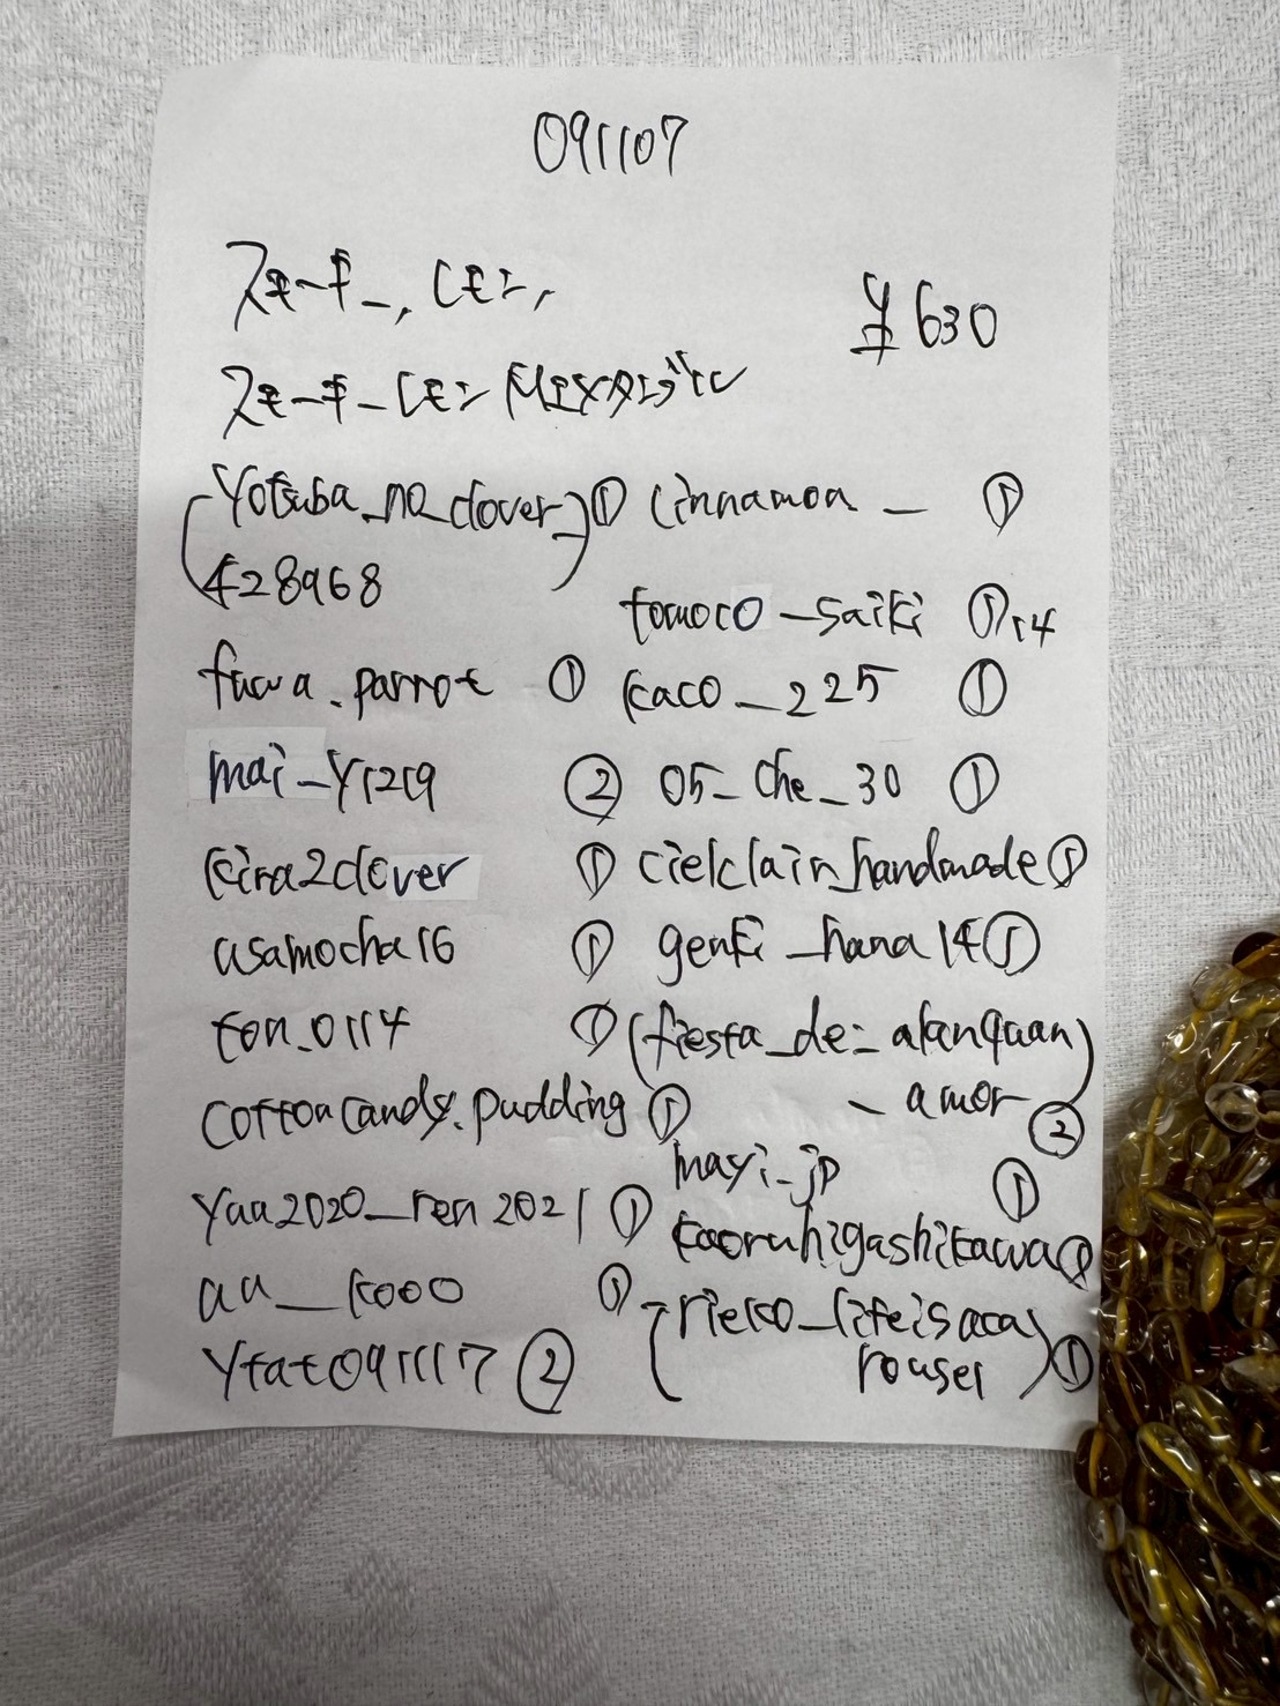 091107
スモーキー,レモン,
¥630
スモーキーレモンMIXタンブル
(yotsuba_no_clover_) ①
428968
fuwa.parrot ①
mai_y1219 ②
kira2clover ①
asamocha16 ①
ton_0114 ①
cottoncandy.pudding ①
yaa2020_ren2021 ①
au__k000 ①
ytat091117 ②
cinnamoa_ ①
tomoco_saiki ① 14
kaco_225 ①
05_che_30 ①
cielclair_handmade ①
genki_hana14 ①
(fiesta_de_alanquan
_amor) ②
mayi_jp ①
kaoruhigashikawa ①
(rieko_lifeisaca
rousel) ①